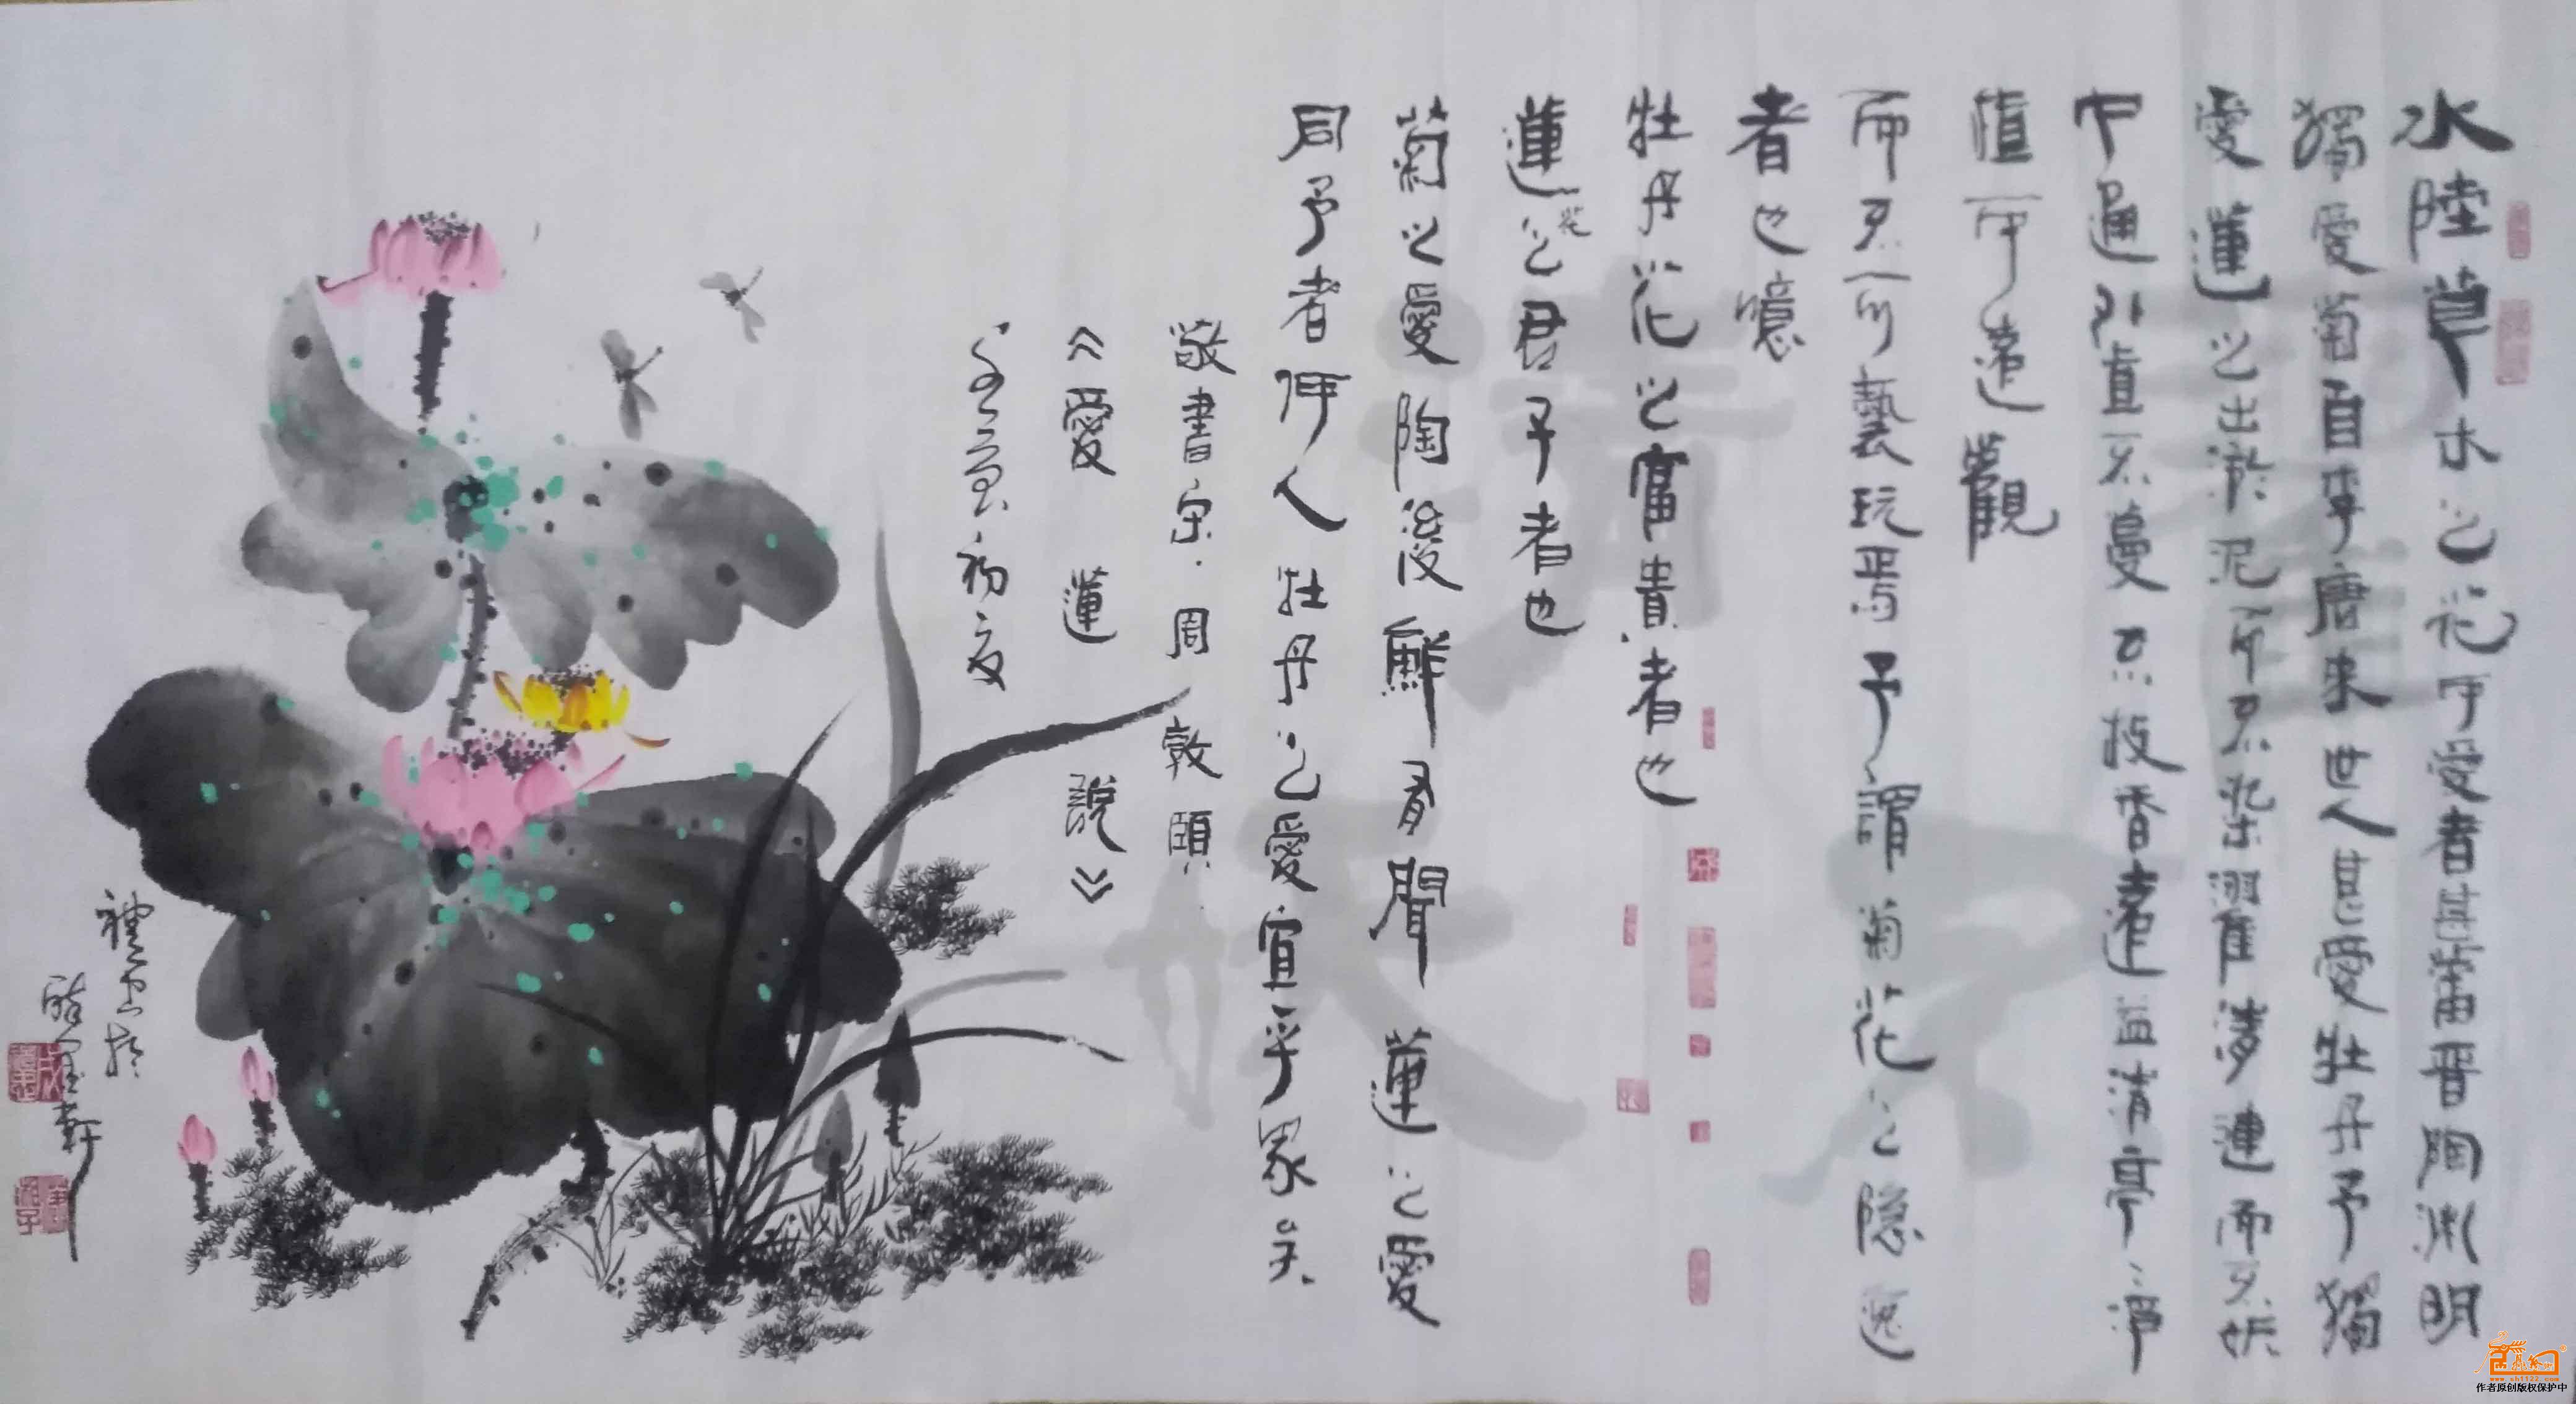 水陸草木之花可愛者甚蕃晋陶淵明
獨愛菊自李唐來世人甚愛牡丹予獨
愛蓮之出淤泥而不染濯清漣而不妖
中通外直不蔓不枝香遠益清亭〻淨
植可遠觀
而不可藝玩焉予謂菊花之隱逸
者也憶
牡丹花之富貴者也
蓮花之君子者也
菊之愛陶後鮮有聞蓮之愛
同予者何人牡丹之愛宜乎眾矣
敬書宋·周敦頤
《愛蓮說》
壬寅初夏
www.sh1122.com
作者原创版权保护中